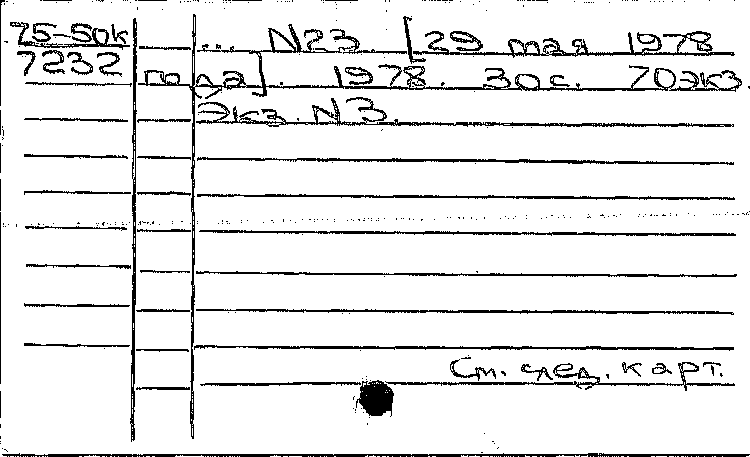 75-50к
7232
... N23. [29 мая 1978
года]. 1978. 30с. 70экз.
Экз. N3.
См. след. карт.